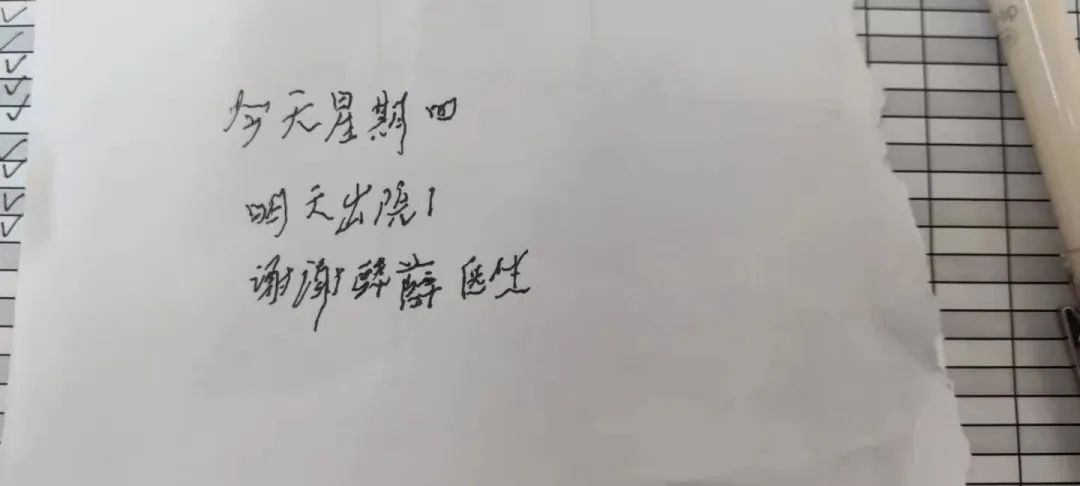 今天星期四
明天出院!
谢谢薛医生